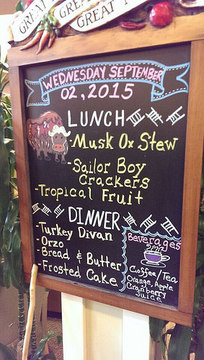 GREAT
GREAT
GREAT
WEDNESDAY SEPTEMBER
02, 2015
LUNCH
-Musk Ox Stew
-Sailor Boy
Crackers
-Tropical Fruit
DINNER
-Turkey Divan
-Orzo
-Bread & Butter
-Frosted Cake
Beverages
Coffee/Tea
Orange, Apple
Cranberry
Juice